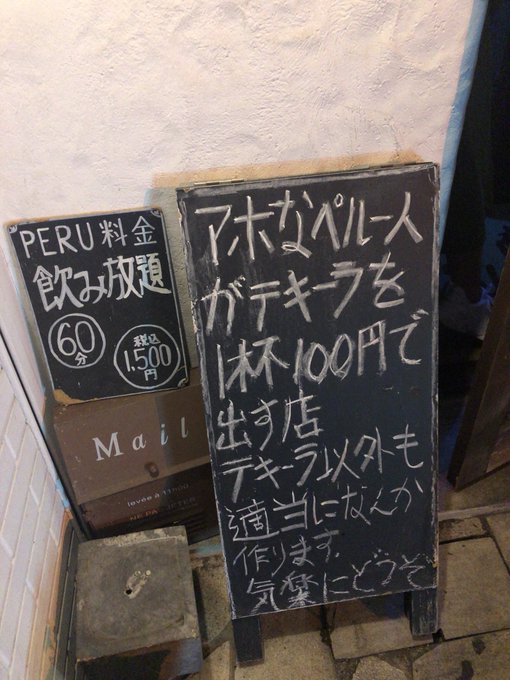 PERU料金
飲み放題
60分
税込
1,500円
アホなペルー人
がテキーラを
1杯100円で
出す店
テキーラ以外も
適当になんか
作ります.
気楽にどうぞ
Mail
levée à 11h00